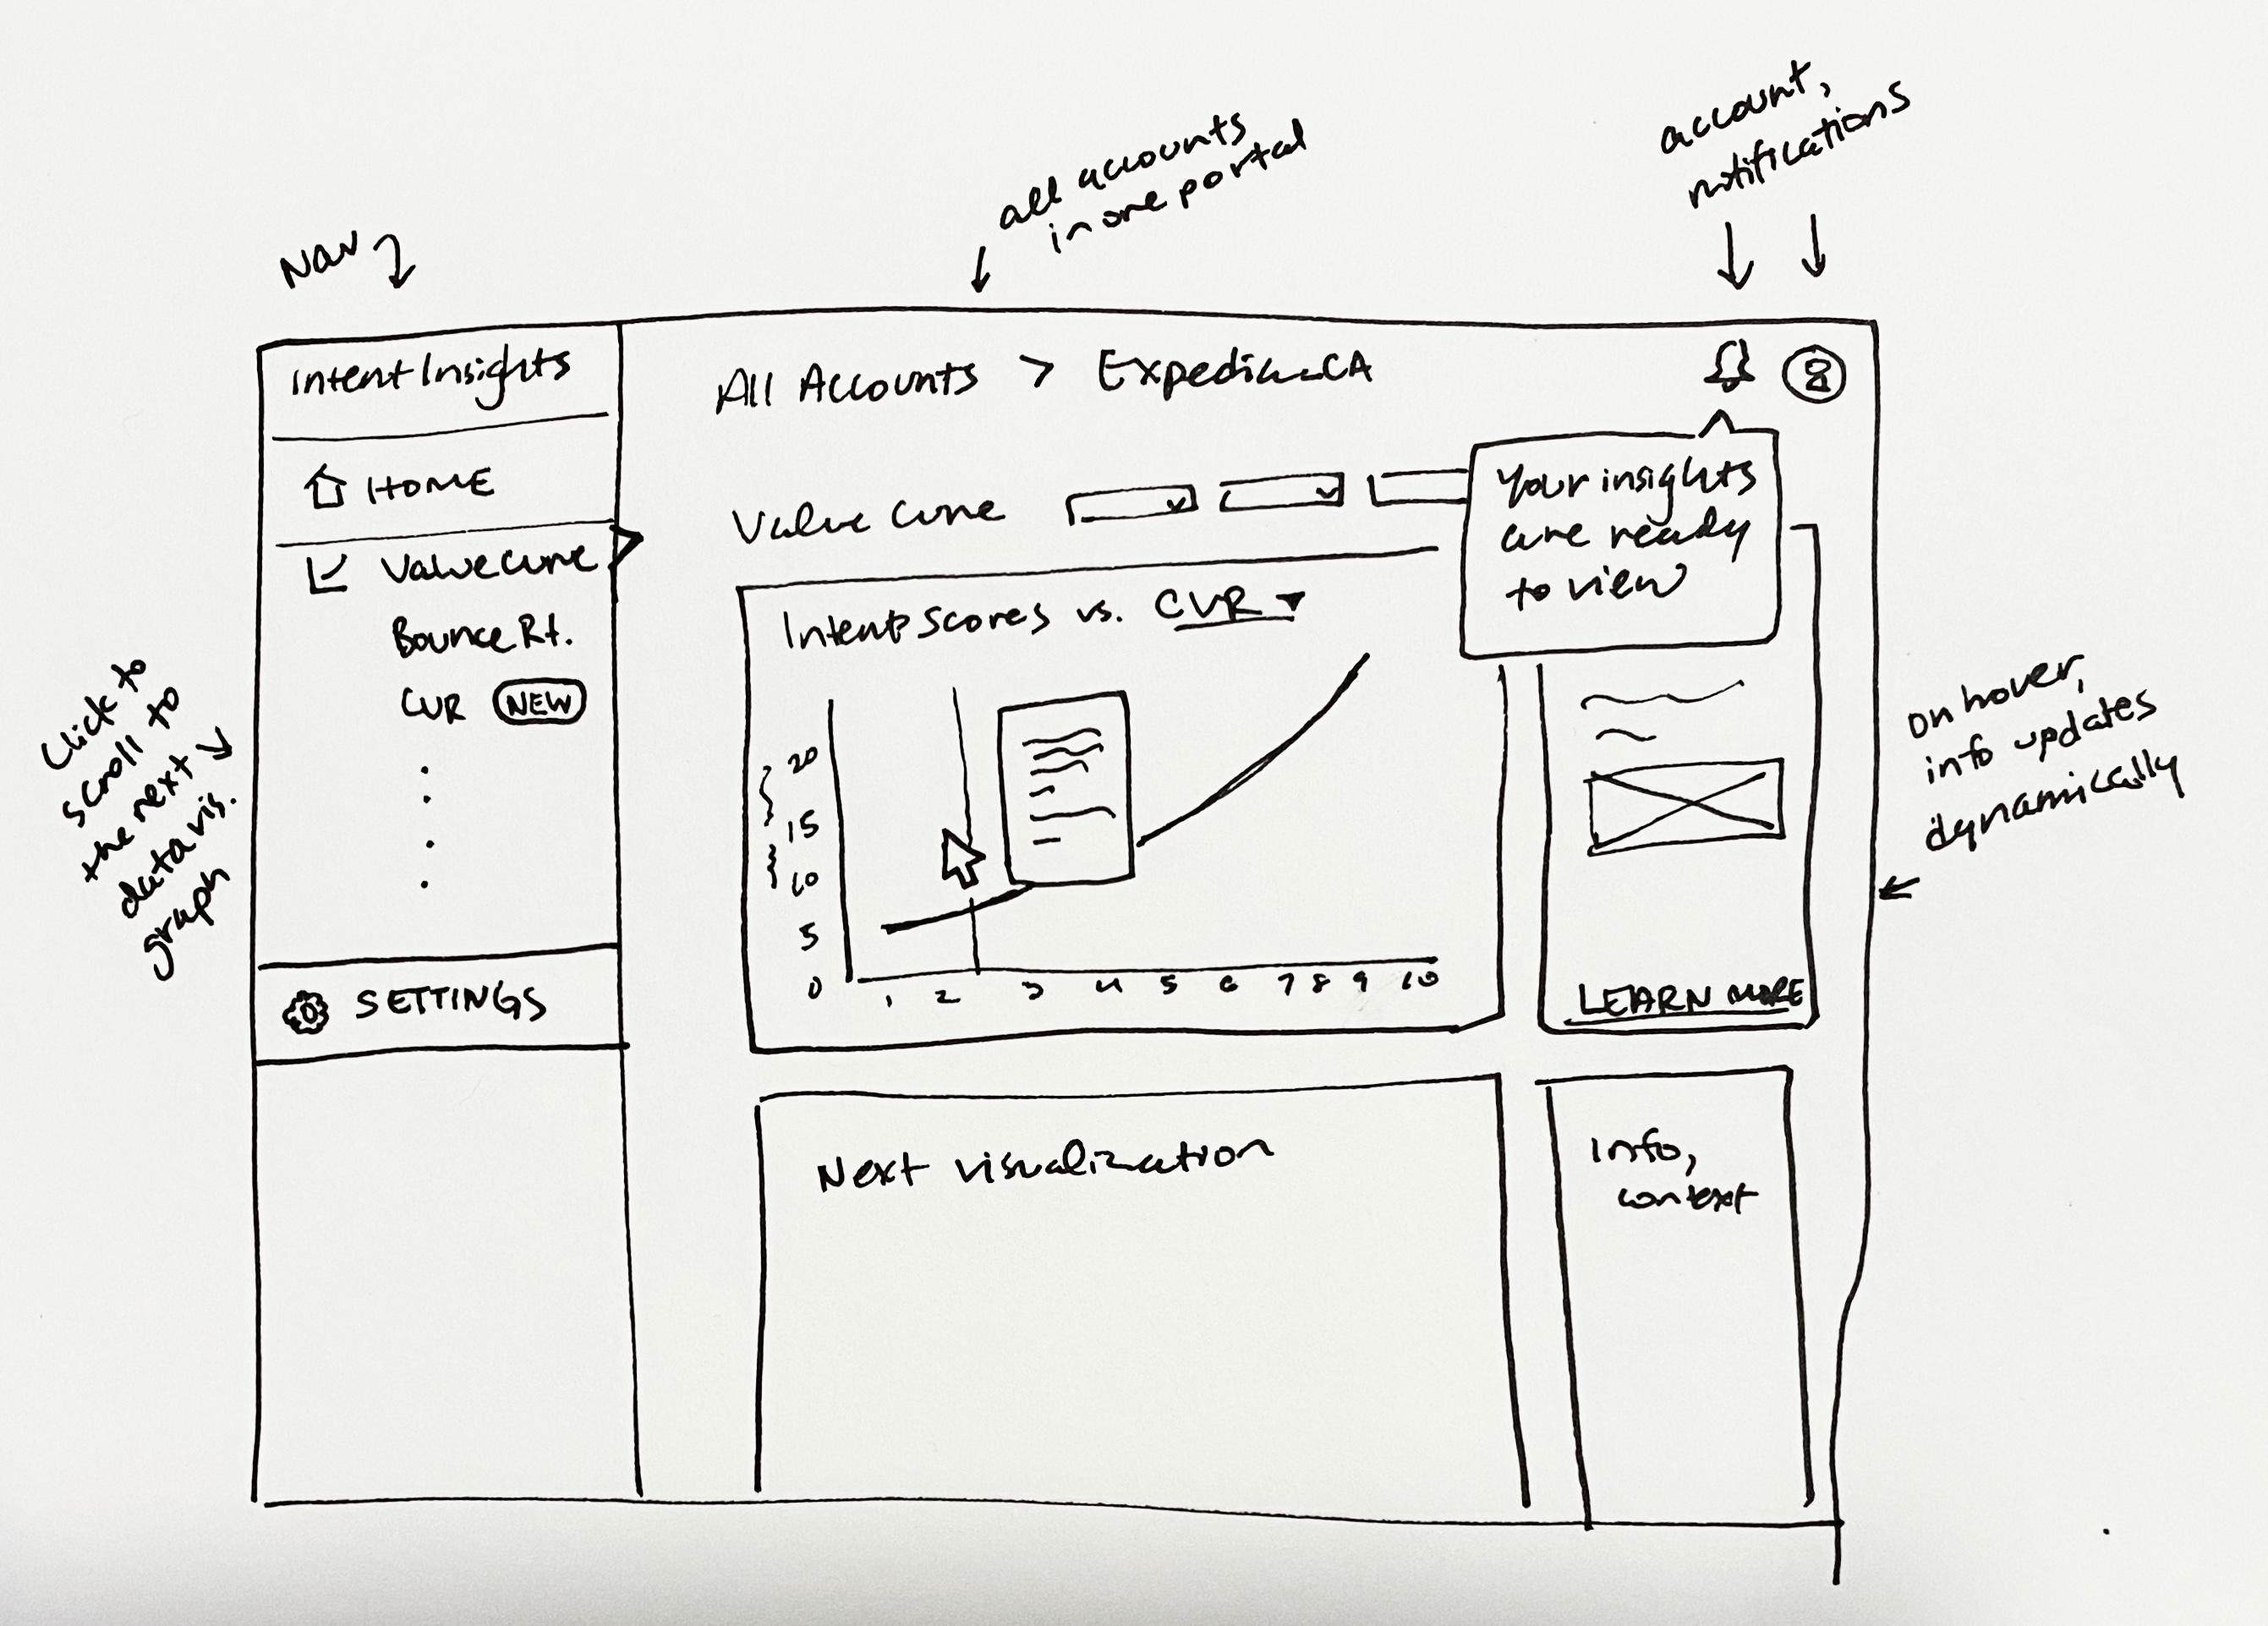 Nav
all accounts
in one portal
account,
notifications
Intent Insights
HOME
Value Curve
Bounce Rt.
CVR NEW
SETTINGS
Click to
scroll to
the next
data vis.
graph
All Accounts > Expedia_CA
Value Curve
Your insights
are ready
to view
Intent Scores vs. CVR
20
15
10
5
0
1 2 3 4 5 6 7 8 9 10
LEARN MORE
on hover,
info updates
dynamically
Next visualization
Info,
context